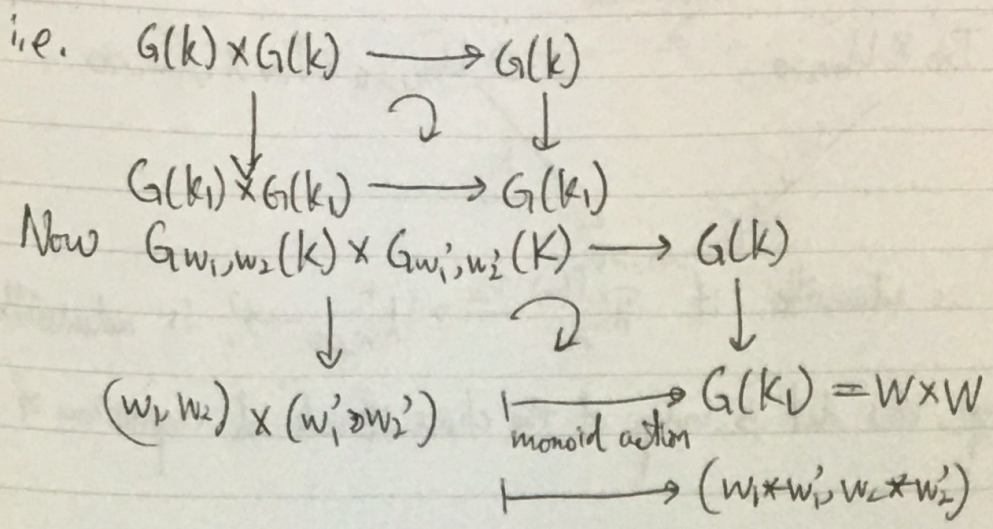 i.e. G(k) × G(k) ⟶ G(k)
↓ ↷ ↓
G(k₁) × G(k₁) ⟶ G(k₁)
Now G_{w₁,w₂}(k) × G_{w₁',w₂'}(K) ⟶ G(k)
↓ ↷ ↓
(w₁, w₂) × (w₁', w₂') ⟼ G(k₁) = W × W
monoid action
⟼ (w₁*w₁', w₂*w₂')